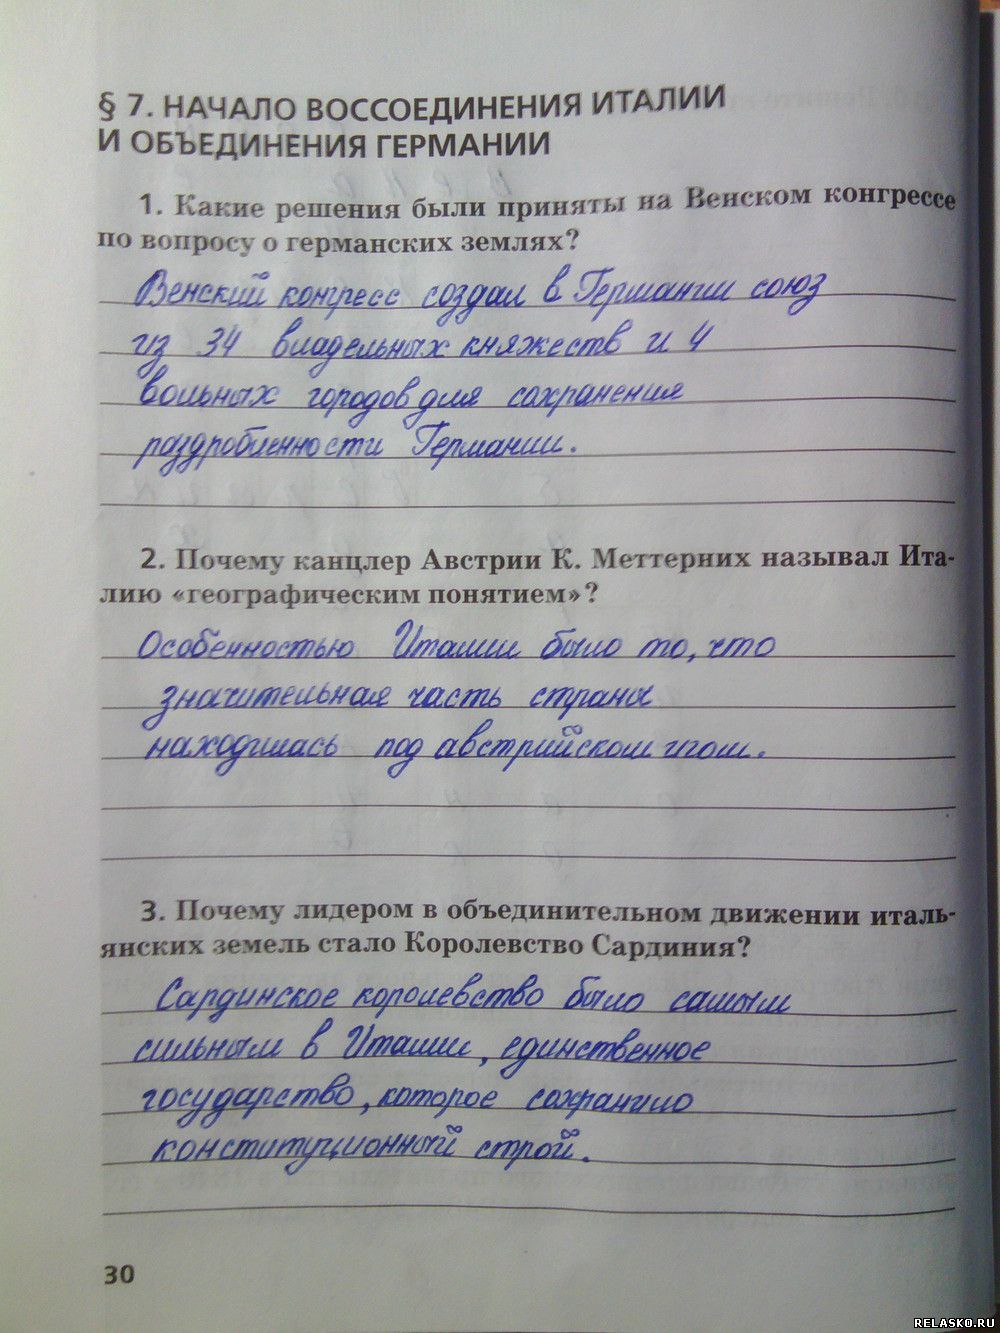 § 7. НАЧАЛО ВОССОЕДИНЕНИЯ ИТАЛИИ
И ОБЪЕДИНЕНИЯ ГЕРМАНИИ
1. Какие решения были приняты на Венском конгрессе
по вопросу о германских землях?
Венский конгресс создал в Германии союз
из 34 владельных княжеств и 4
вольных городов для сохранения
раздробленности Германии.
2. Почему канцлер Австрии К. Меттерних называл Ита-
лию «географическим понятием»?
Особенностью Италии было то, что
значительная часть страны
находилась под австрийским игом.
3. Почему лидером в объединительном движении италь-
янских земель стало Королевство Сардиния?
Сардинское королевство было самым
сильным в Италии, единственное
государство, которое сохранило
конституционный строй.
30
RELASKO.RU